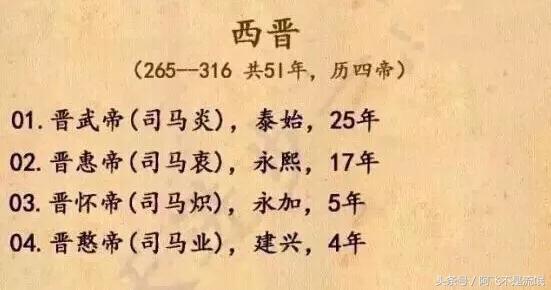 西晋
（265--316 共5l年，历四帝）
01.晋武帝(司马炎)，泰始，25年
02.晋惠帝(司马衷)，永熙，17年
03.晋怀帝(司马炽)，永加，5年
04.晋憨帝(司马业)，建兴，4年
头条号／阿飞不是流氓